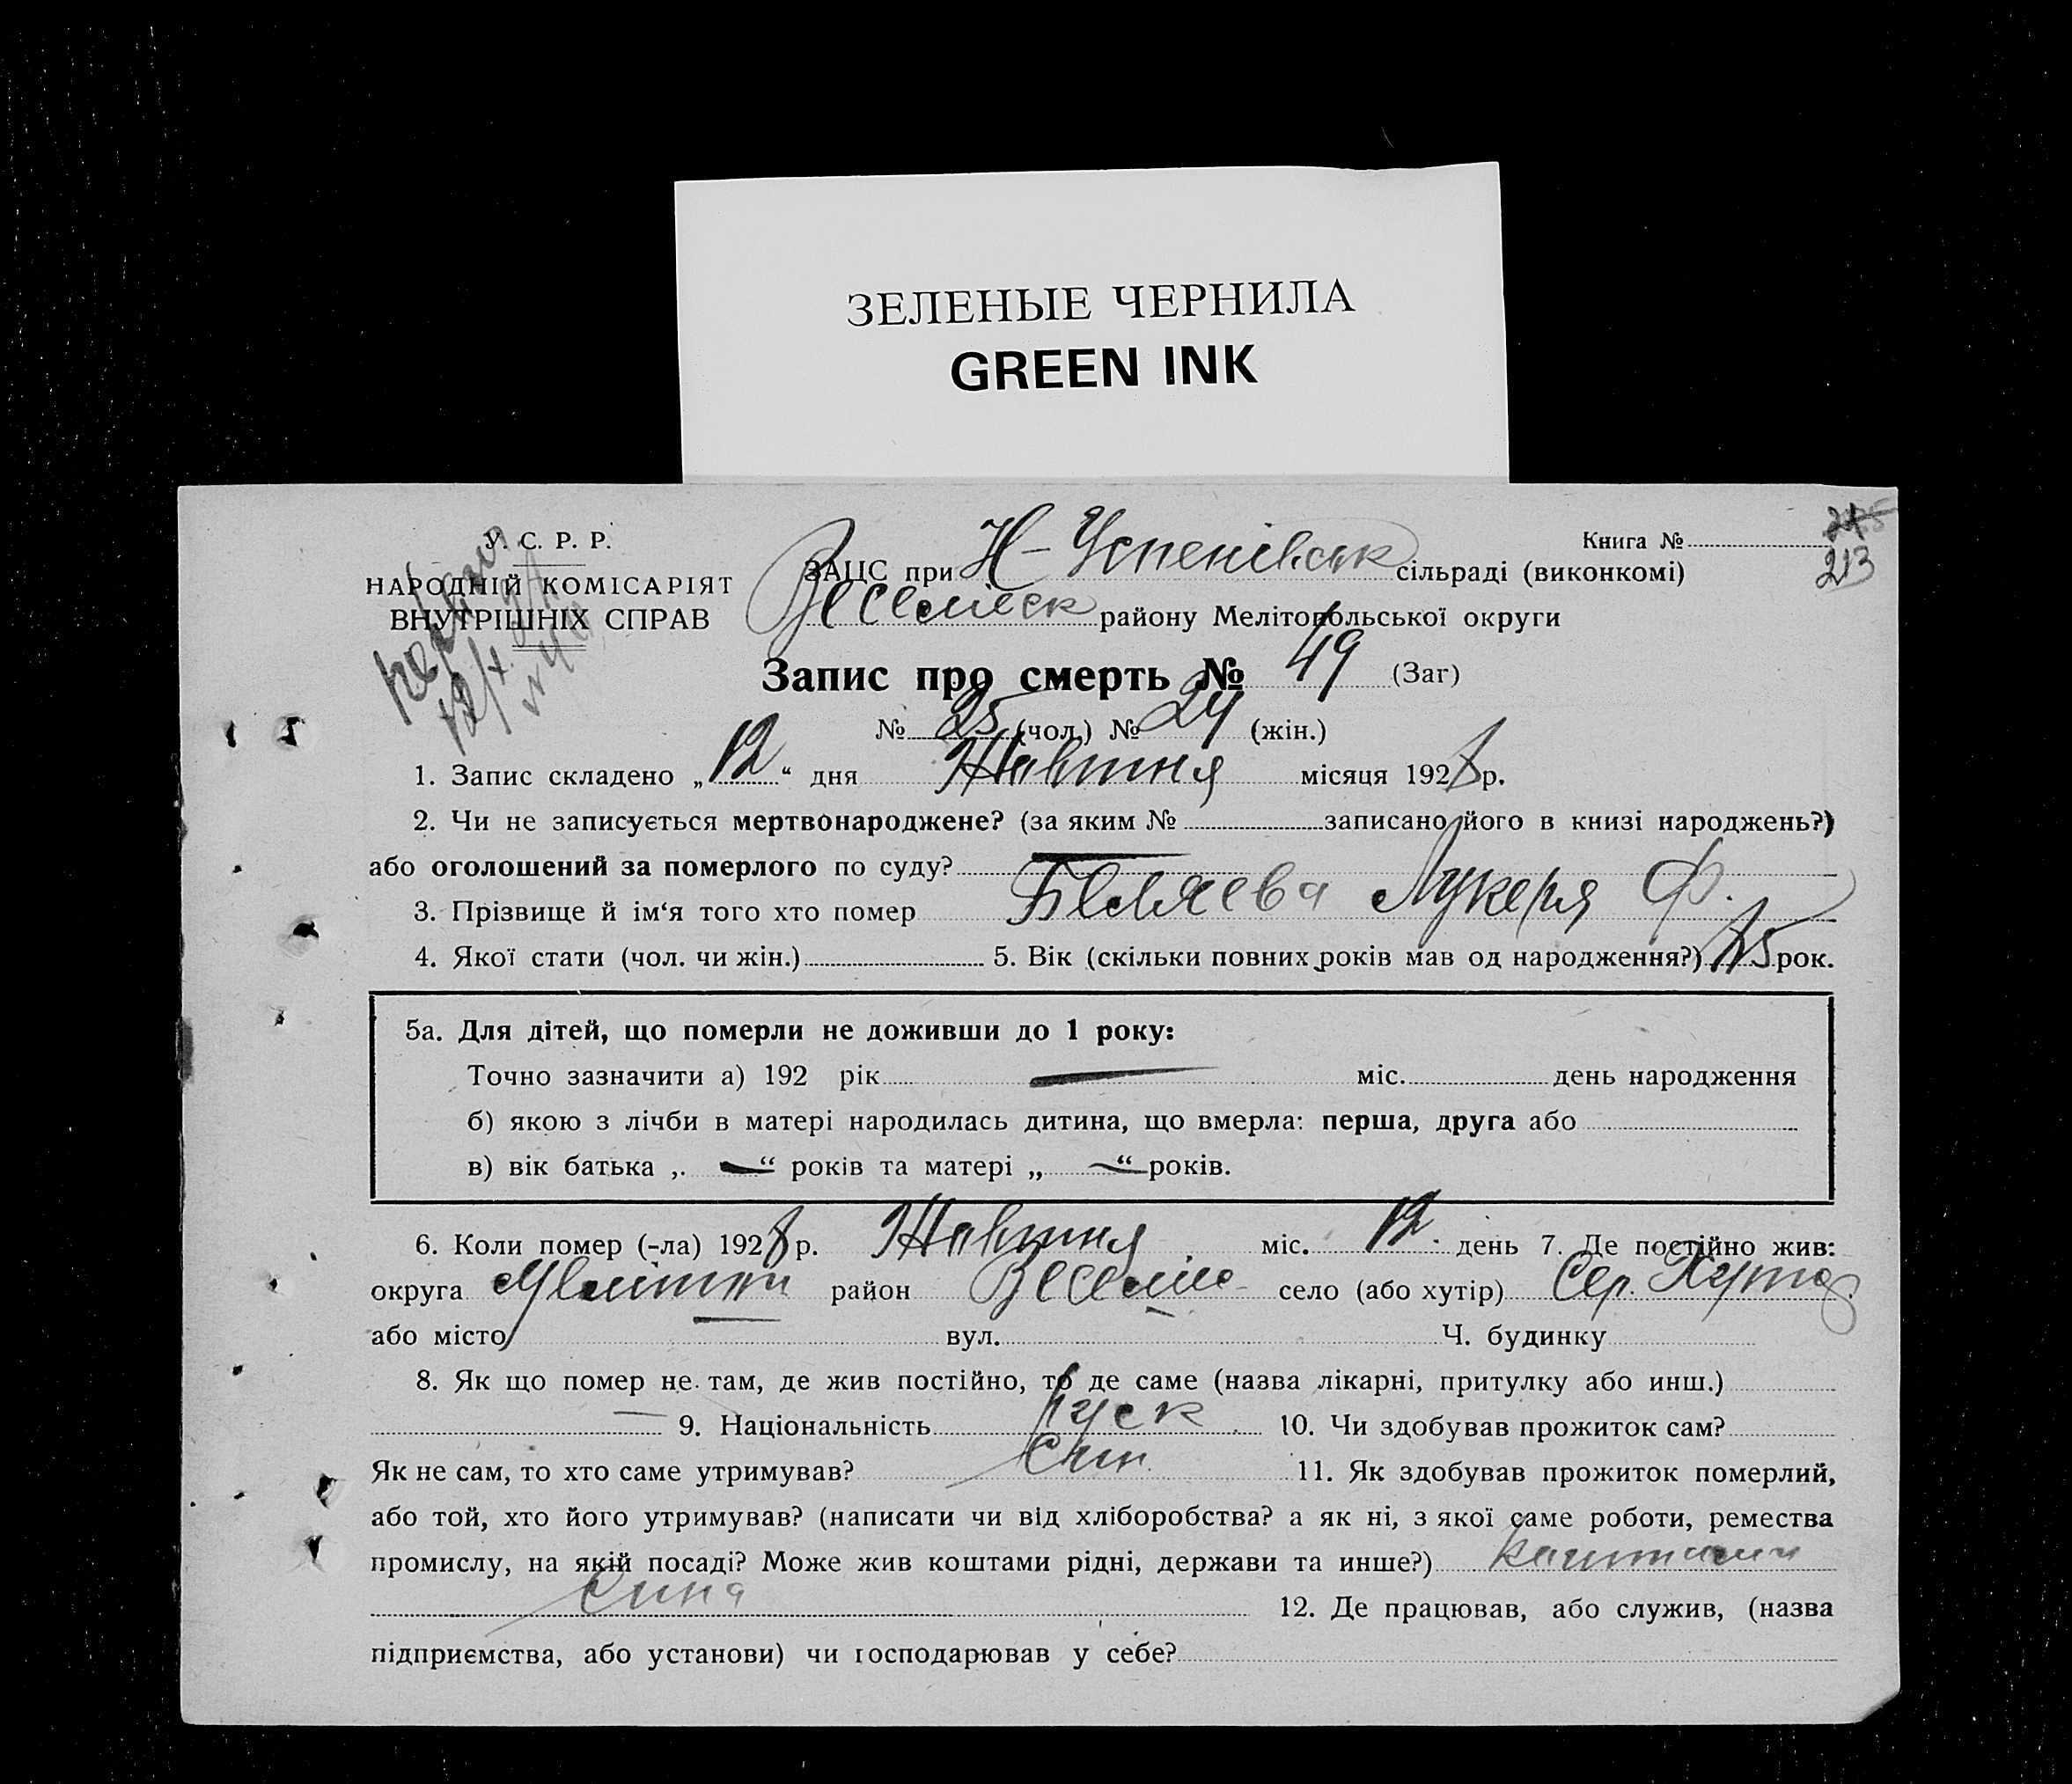 ЗЕЛЕНЫЕ ЧЕРНИЛА
GREEN INK
213
У. С. Р. Р.
НАРОДНІЙ КОМІСАРІЯТ
ВНУТРІШНІХ СПРАВ
Книга №
ЗАЦС при Н-Успенівськ сільраді (виконкомі)
Веселівск району Мелітопольської округи
Запис про смерть № 49 (Заг)
№ 25 (чол.) № 24 (жін.)
1. Запис складено „12“ дня Жовтня місяця 1928 р.
2. Чи не записується мертвонароджене? (за яким № записано його в книзі народжень?)
або оголошений за померлого по суду?
3. Прізвище й ім‘я того хто помер Беляева Лукеря Ф.
4. Якої стати (чол. чи жін.) 5. Вік (скільки повних років мав од народження?) 75 рок.
5а. Для дітей, що померли не доживши до 1 року:
Точно зазначити а) 192 рік — міс. день народження
б) якою з лічби в матері народилась дитина, що вмерла: перша, друга або
в) вік батька „ — “ років та матері „ — “ років.
6. Коли помер (-ла) 1928 р. Жовтня міс. 12 день 7. Де постійно жив:
округа Меліton район Веселів село (або хутір) Сер.
або місто вул. Ч. будинку
8. Як що помер не там, де жив постійно, то де саме (назва лікарні, притулку або инш.)
— 9. Національність руск 10. Чи здобував прожиток сам?
Як не сам, то хто саме утримував? Син 11. Як здобував прожиток померлий,
або той, хто його утримував? (написати чи від хліборобства? а як ні, з якої саме роботи, ремества
промислу, на якій посаді? Може жив коштами рідні, держави та инше?) коштами
сина 12. Де працював, або служив, (назва
підприємства, або установи) чи господарював у себе?